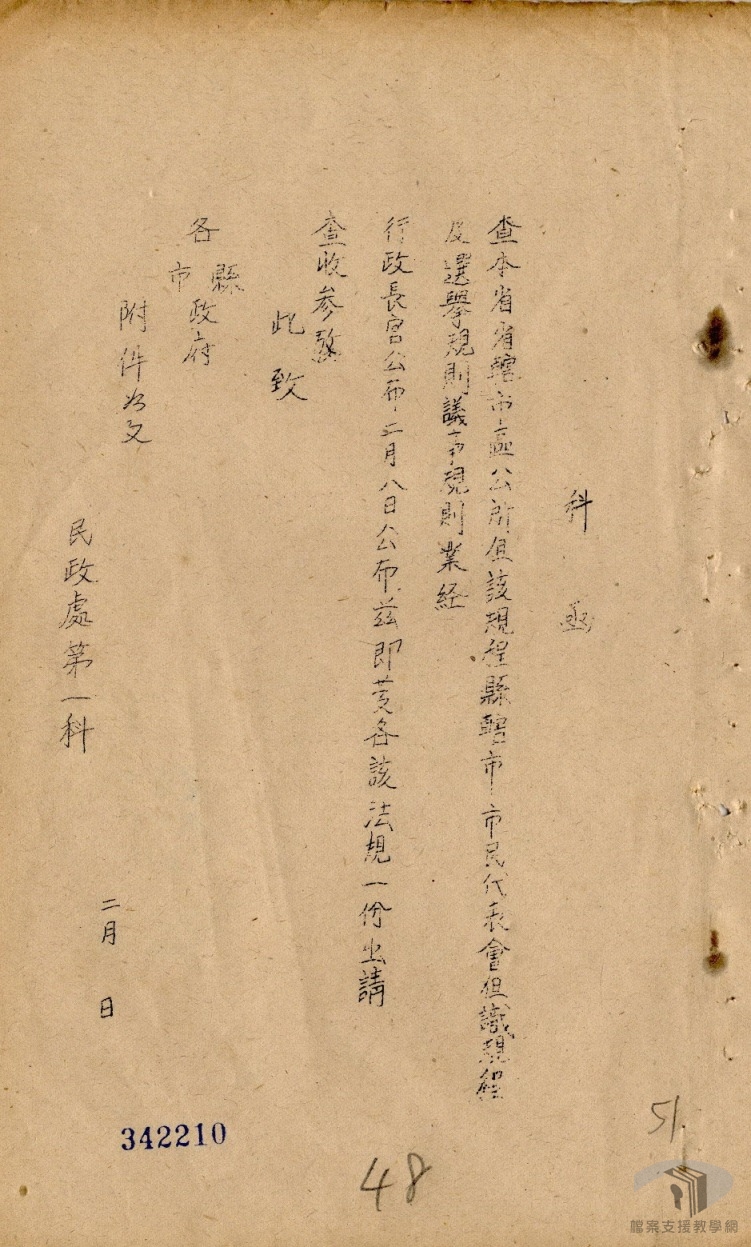 科 函
查本省省轄市區公所組該規程縣轄市市民代表會組識規程
及選舉規則議事規則業経
行政長官公布二月八日公布茲即茭各該法規一份出請
查收參攷
此致
各縣市政府
附件如文
民政處第一科
二月 日
342210
48
51.
檔案支援教學網